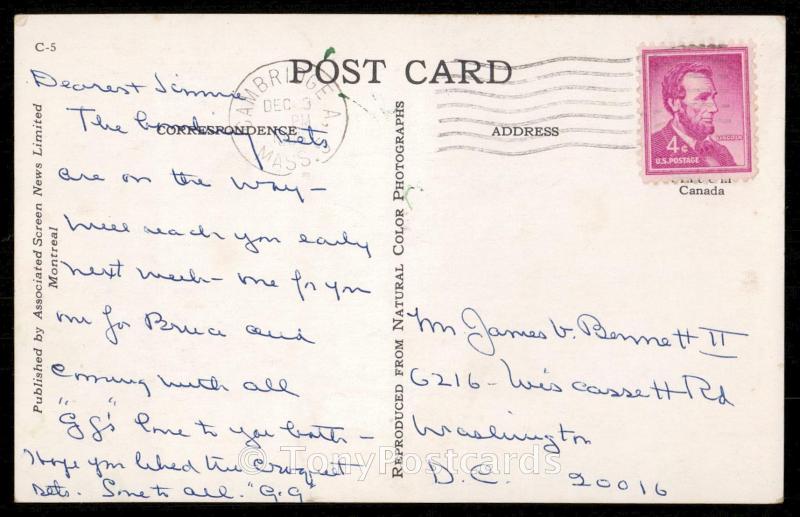 C-5
POST CARD
CORRESPONDENCE
ADDRESS
CAMBRIDGE, A.
DEC
PM
MASS.
LINCOLN
4¢
U.S. POSTAGE
Canada
Published by Associated Screen News Limited
Montreal
REPRODUCED FROM NATURAL COLOR PHOTOGRAPHS
Dearest Jimmie
The sets
are on the way -
will reach you early
next week - one for you
one for Bruce and
coming with all
"GG's" love to you both -
Hope you liked the Croquett
sets. Love to all. "G.G"
Mr James V. Bennett II
6216 - Wiscassett Rd
Washington
D.C. 20016
© TonyPostcards